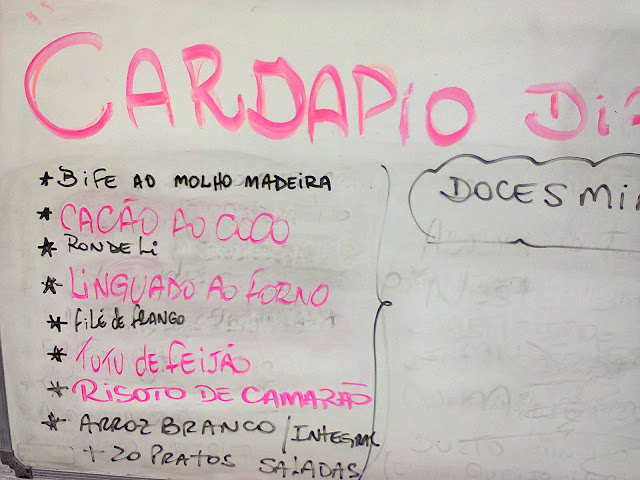 CARDAPIO Di
* BIFE AO MOLHO MADEIRA
* CACÃO AO COCO
* RONDELI
* LINGUADO AO FORNO
* FILÉ de FRANGO
* TUTU de FEIJÃO
* RISOTO DE CAMARÃO
* ARROZ BRANCO / INTEGRAL
+ 20 PRATOS SALADAS
DOCES MI